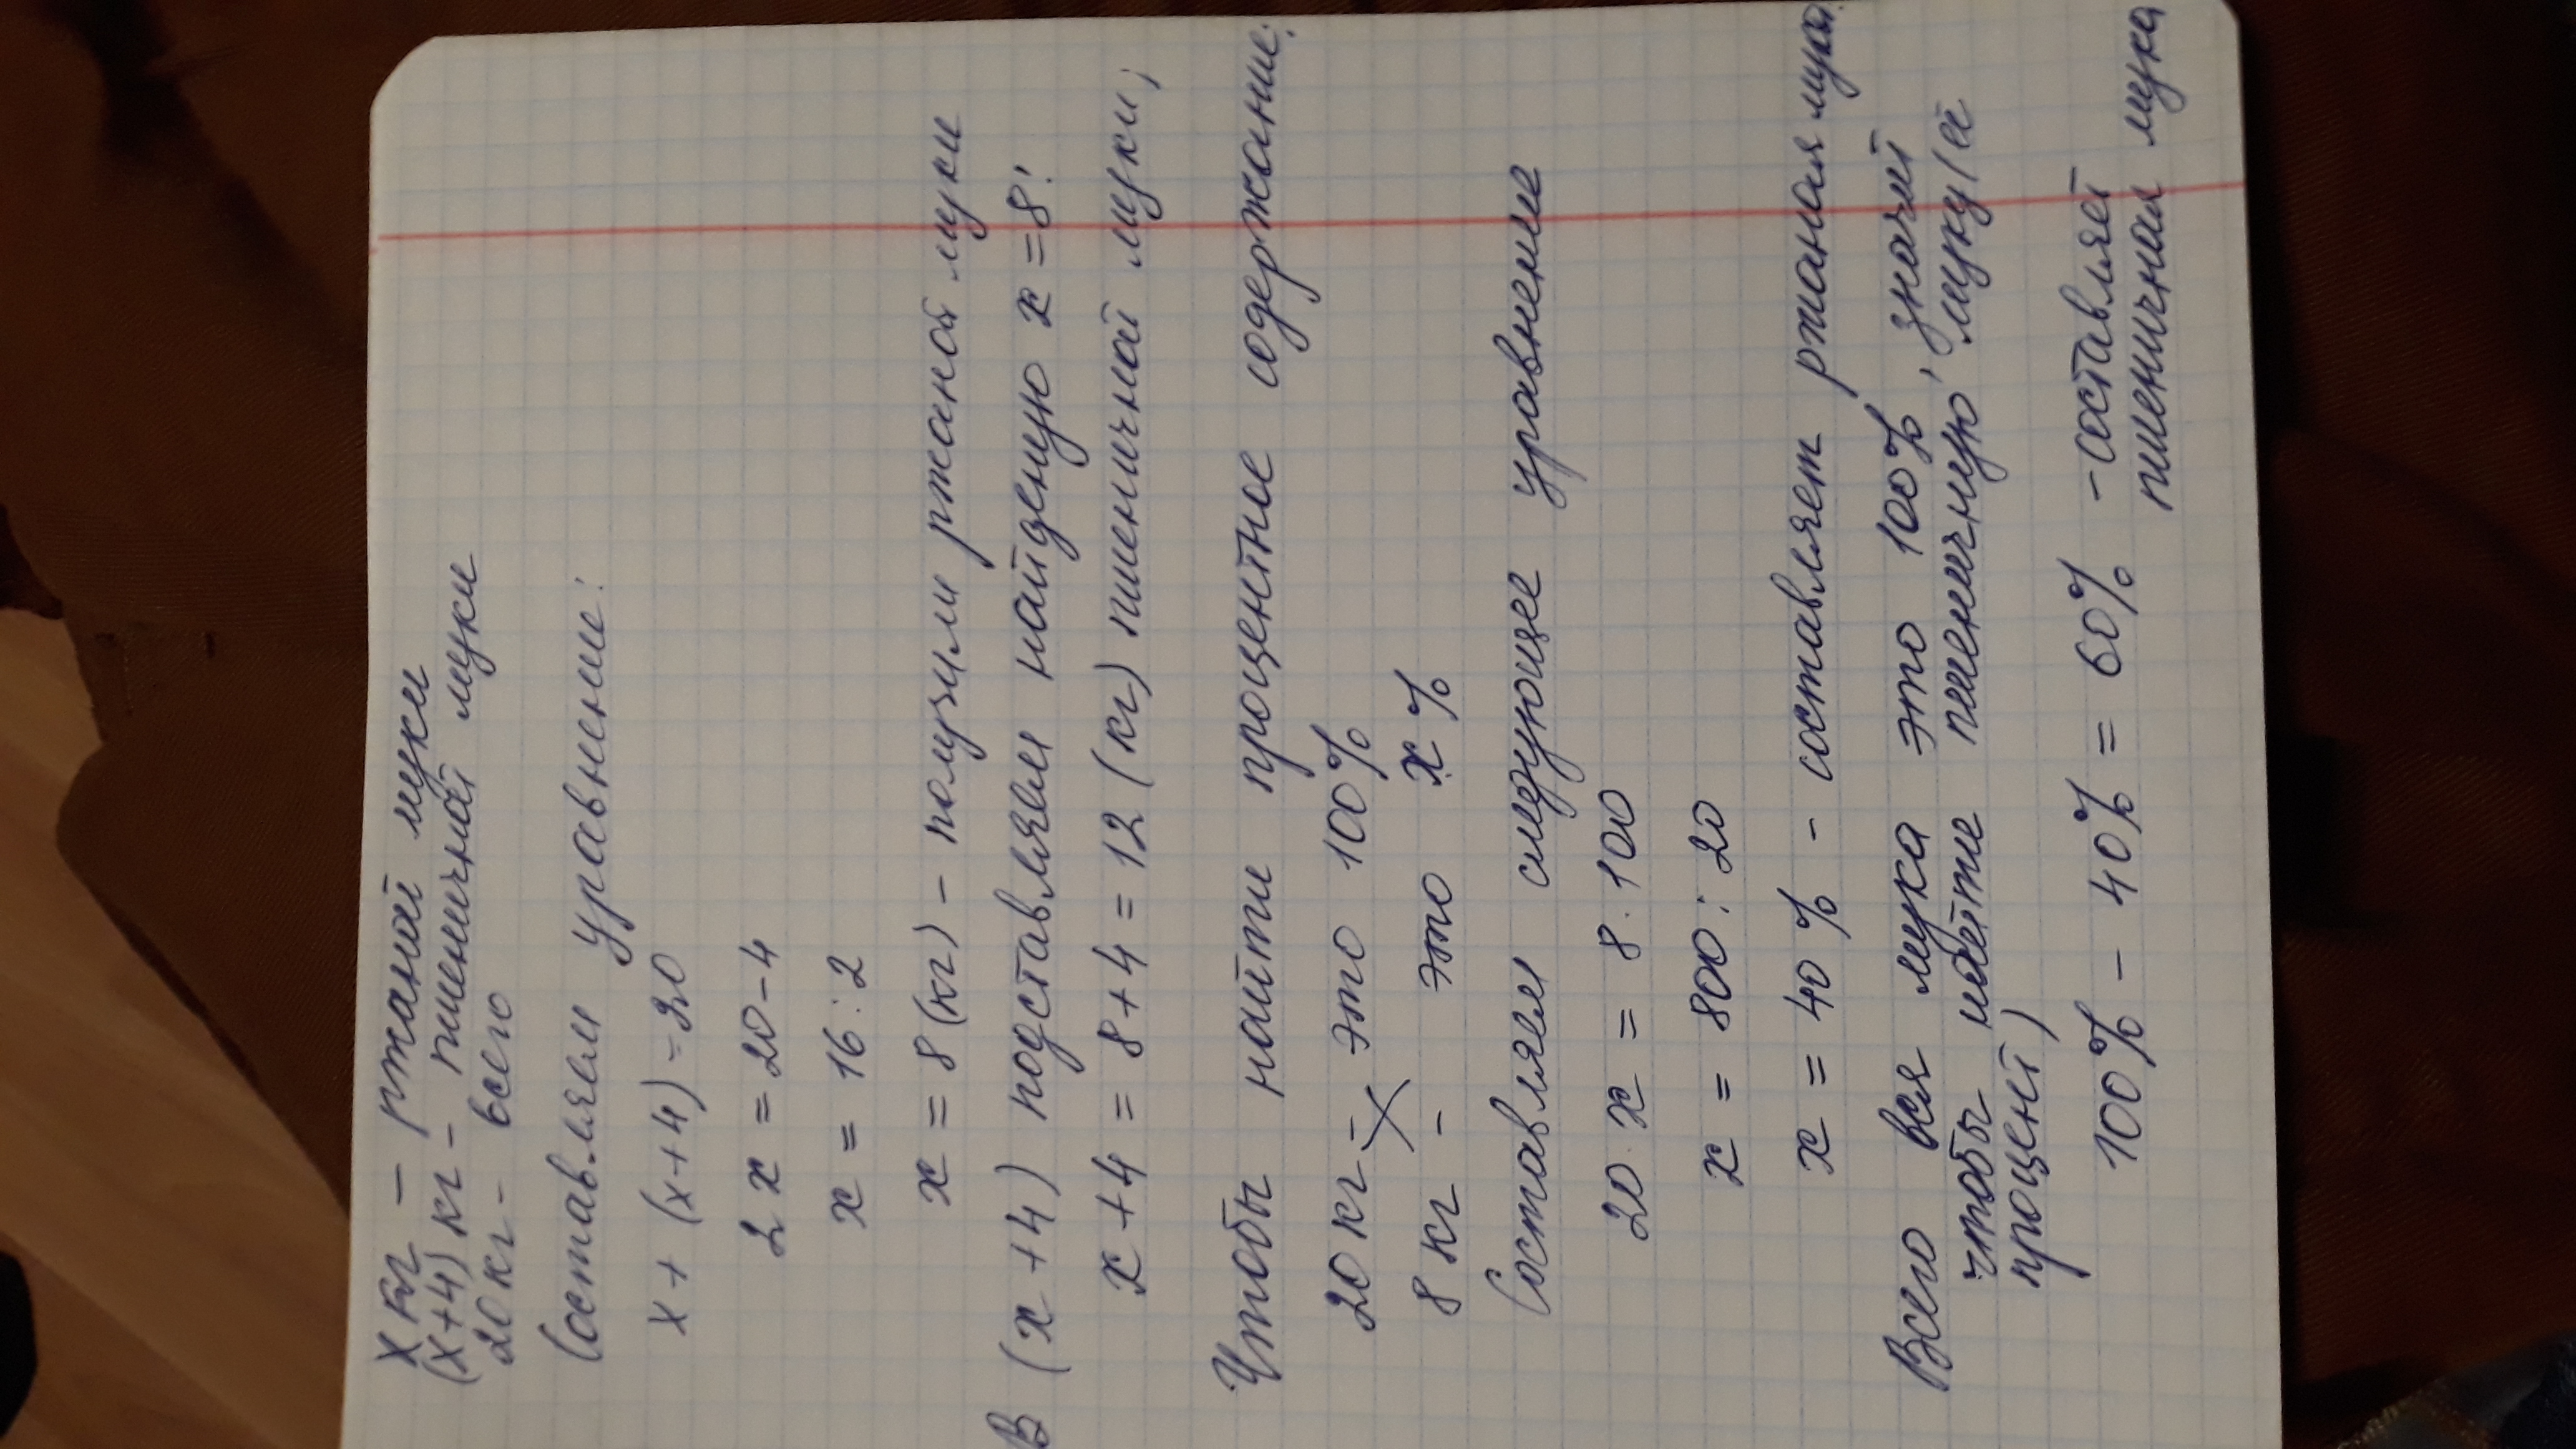 х кг — ржаной муки
(х+4) кг - пшеничной муки
20 кг - всего
Составляем уравнение:
х + (х+4) = 20
2 х = 20-4
х = 16 : 2
х = 8 (кг) - получим ржаной муки
В (х+4) подставляем найденую х = 8:
х+4 = 8+4 = 12 (кг) пшеничной муки;
Чтобы найти процентное содержание:
20 кг - это 100%
8 кг - это х %
Составляем следующее уравнение
20 · х = 8 · 100
х = 800 : 20
х = 40 % - составляет ржаная мука.
Всего вся мука это 100%, значит
чтобы найти пшеничную муку (её
процент)
100% - 40% = 60% - составляет
пшеничная мука